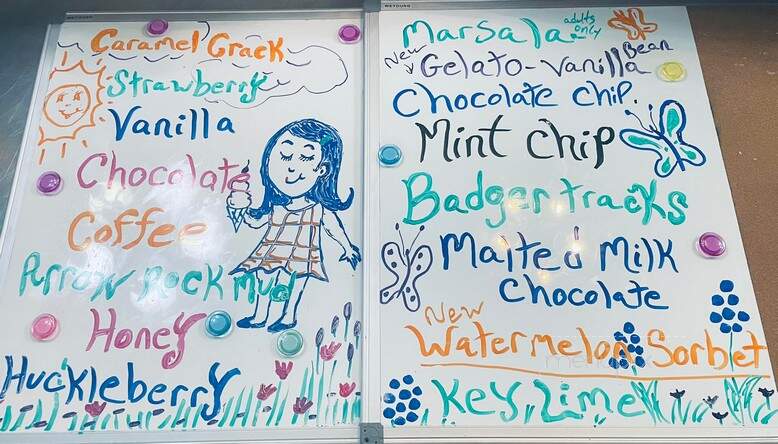 Caramel Crack
Strawberry
Vanilla
Chocolate
Coffee
Arrow Rock Mud
Honey
Huckleberry
Marsala adults only
New Gelato-Vanilla Bean
Chocolate Chip.
Mint Chip
Badger tracks
Malted Milk
Chocolate
New
Watermelon Sorbet
Key Lime